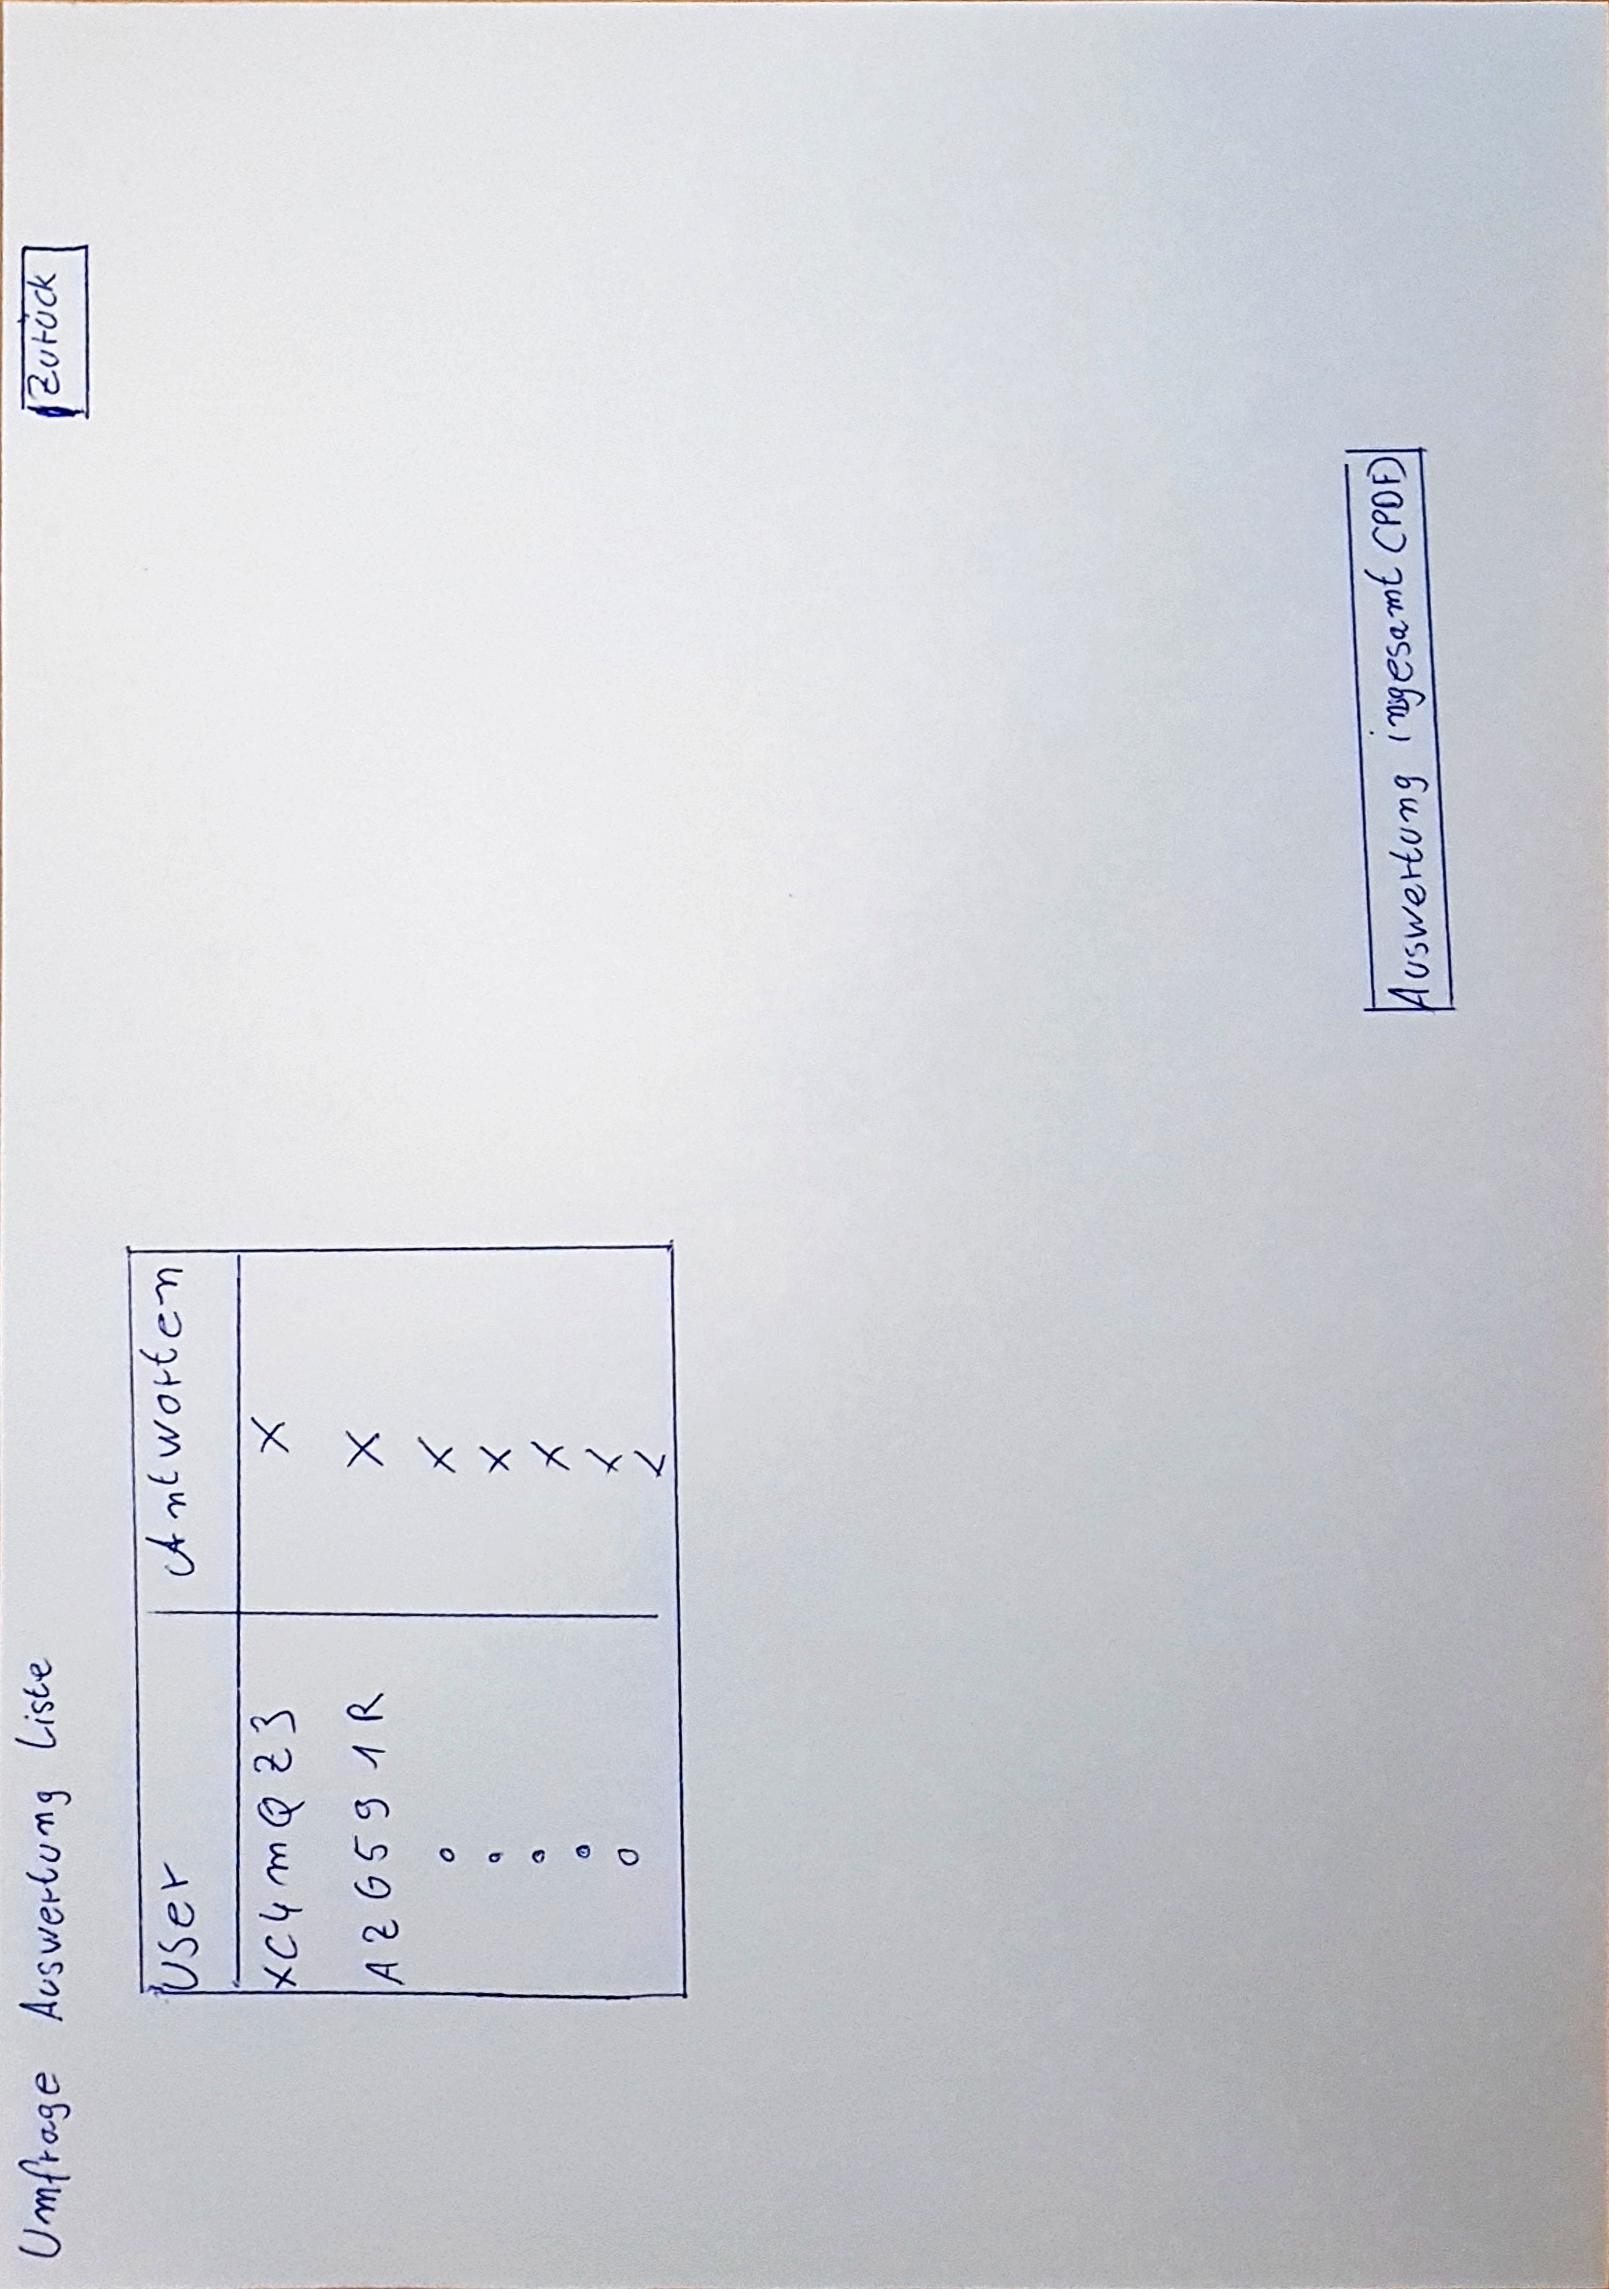 Umfrage Auswertung Liste
Zurück
User Antworten
XC4mQZ3 X
AZG591R X
X
X
X
X
Auswertung insgesamt (PDF)